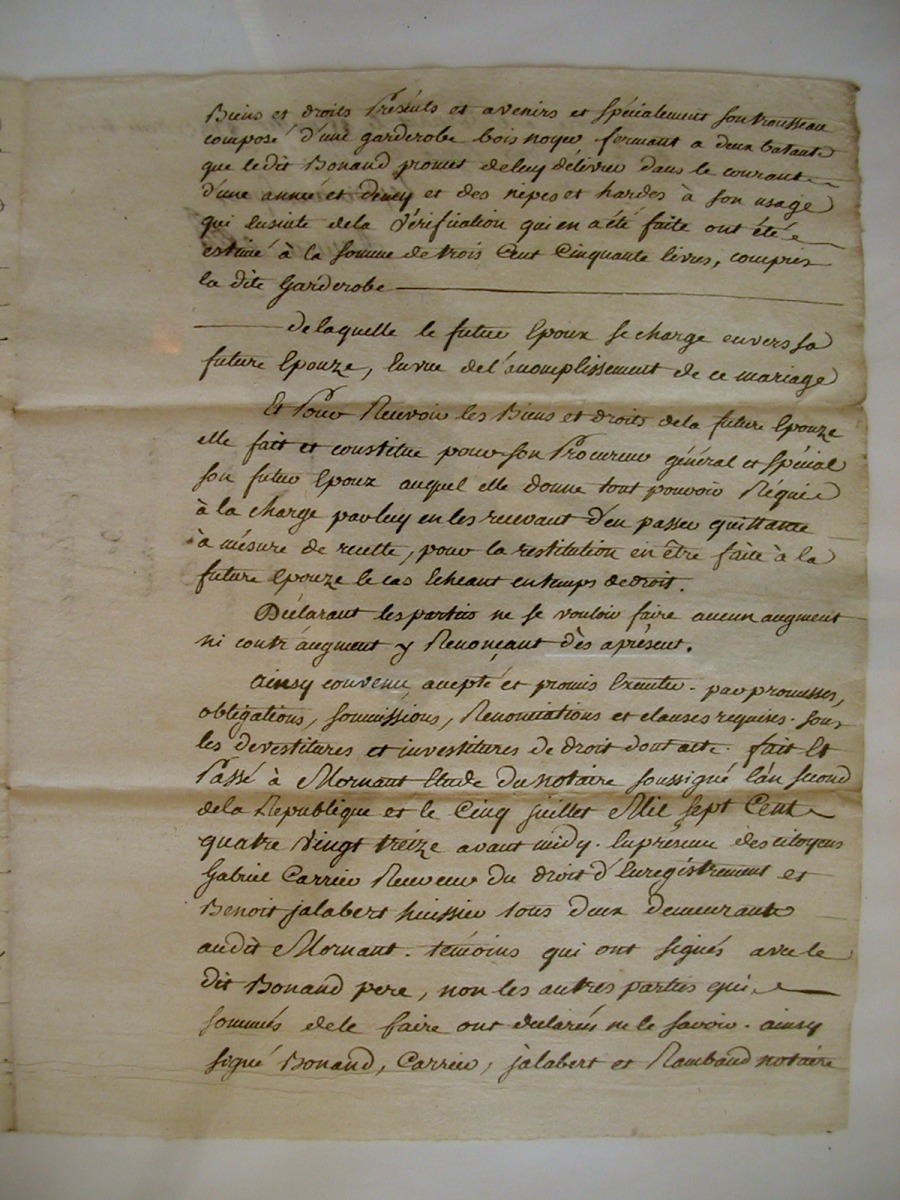 Biens et droits Présents et avenirs et spécialement son trousseau
composé d'une garderobe bois noyer fermant a deux batants
que le dit Bonand promet de luy délivrer dans le courant
d'une année et demy et des nipes et hardes à son usage
qui ensuite de la Vérification qui en a été faite ont été
estimé à la somme de trois Cent Cinquante livres, compris
la dite Garderobe
de laquelle le futur Epoux se charge envers sa
future Epouze, en vue de l'acomplissement de ce mariage
Et Pour Recevoir les Biens et droits de la future Epouze
elle fait et constitue pour son Procureur général et Spécial
son futur Epoux auquel elle donne tout pouvoir Réquis
à la charge par luy en les recevant d'en passer quittance
à mésure de recette, pour la restitution en être faite à la
future Epouze le cas Echeant en temps de droit.
Déclarant les parties ne se vouloir faire aucun augment
ni contr'augment y Renonçant dès aprésent.
Ainsy convenu accepté et promis Executer. par promesses,
obligations, soumissions, Renonciations et clauses requises. sous
les devestitures et investitures de droit dont acte. fait Et
Passé à Mornant Etude du notaire soussigné l'an second
de la Republique et le Cinq juillet Mil sept Cent
quatre Vingt treize avant midy. En présence des citoyens
Gabriel Carrier Receveur du droit d'Enregistrement et
Benoit jalabert huissier tous deux demeurants
audit Mornant. temoins qui ont signés avec le
dit Bonand pere, non les autres parties qui
sommés de le faire ont declarés ne le savoir. ainsy
signé Bonand, Carrier, jalabert et Rambaud notaire